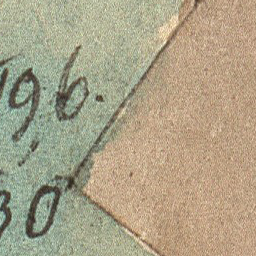 196.
30